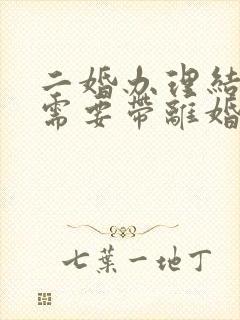 二婚办理结
需要带離婚
七葉一地丁